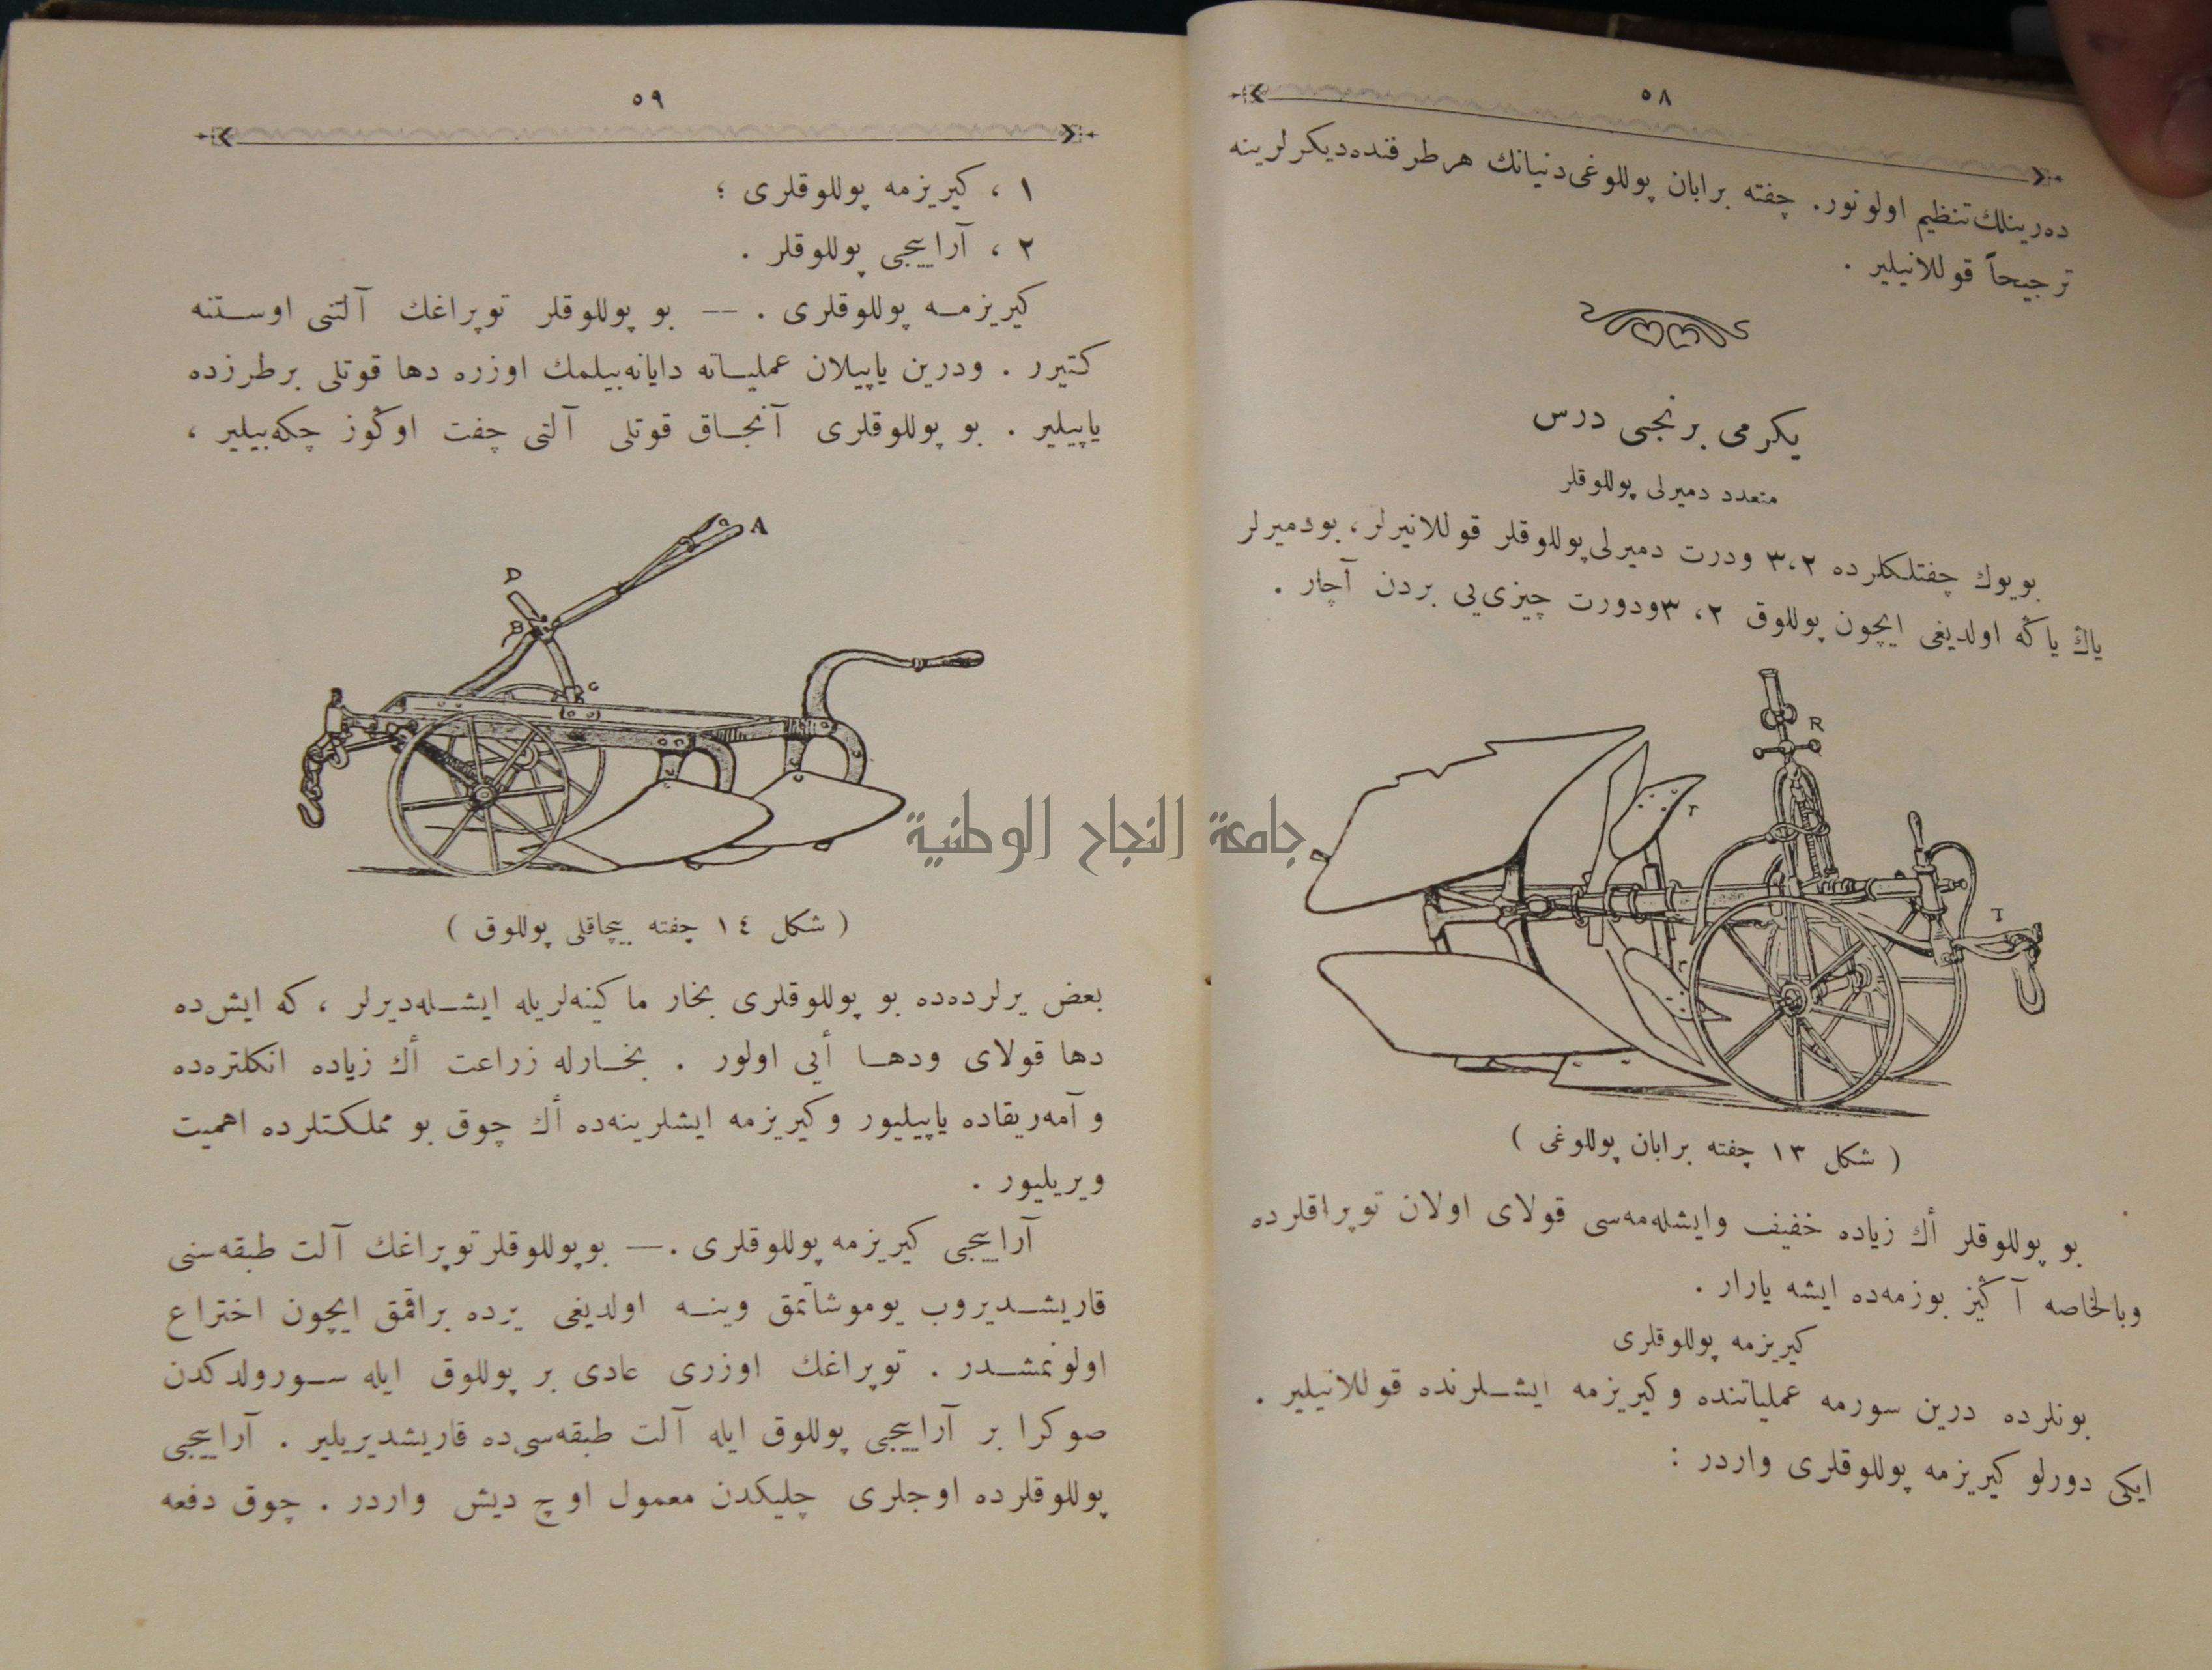 ٥٨
ده‌رينلك تنظيم اولونور. چفته برابان پوللوغی دنيانك هر طرفنده ديكرلرينه
ترجيحاً قوللانيلير .
يكرمی برنجی درس
متعدد دميرلی پوللوقلر
بويوك چفتلكلرده ٣،٢ ودرت دميرلی پوللوقلر قوللانيرلر ، بودميرلر
ياڭ ياڭه اولديغی ايچون پوللوق ٢ ، ٣ ودورت چيزی‌يی بردن آچار .
R
T
( شكل ١٣ چفته برابان پوللوغی )
بو پوللوقلر أك زياده خفيف وايشله‌مه‌سی قولای اولان توپراقلرده
وبالخاصه آڭيز بوزمه‌ده ايشه يارار .
كيريزمه پوللوقلری
بونلرده درين سورمه عملياتنده وكيريزمه ايشلرنده قوللانيلير .
ايكی دورلو كيريزمه پوللوقلری واردر :
٥٩
١ ، كيريزمه پوللوقلری ؛
٢ ، آراييجی پوللوقلر .
كيريزمه پوللوقلری . — بو پوللوقلر توپراغك آلتنی اوستنه
كتيرر . ودرين ياپيلان عملياته دايانه‌بيلمك اوزره دها قوتلی برطرزده
ياپيلير . بو پوللوقلری آنجاق قوتلی آلتی چفت اوڭوز چكه‌بيلير ،
A
D
B
C
( شكل ١٤ چفته بيچاقلی پوللوق )
بعض يرلرده‌ده بو پوللوقلری بخار ماكينه‌لريله ايشله‌ديرلر ، كه ايش‌ده
دها قولای ودها أيی اولور . بخارله زراعت أك زياده انكلتره‌ده
و آمه‌ريقاده ياپيليور وكيريزمه ايشلرينه‌ده أك چوق بو مملكتلرده اهميت
ويريليور .
آراييجی كيريزمه پوللوقلری . — بو پوللوقلر توپراغك آلت طبقه‌سنی
قاريشديروب يوموشاتمق وينه اولديغی يرده براقمق ايچون اختراع
اولونمشدر . توپراغك اوزری عادی بر پوللوق ايله سورولدكدن
صوكرا بر آراييجی پوللوق ايله آلت طبقه‌سی‌ده قاريشديريلير . آراييجی
پوللوقلرده اوجلری چليكدن معمول اوچ ديش واردر . چوق دفعه
جامعة النجاح الوطنية